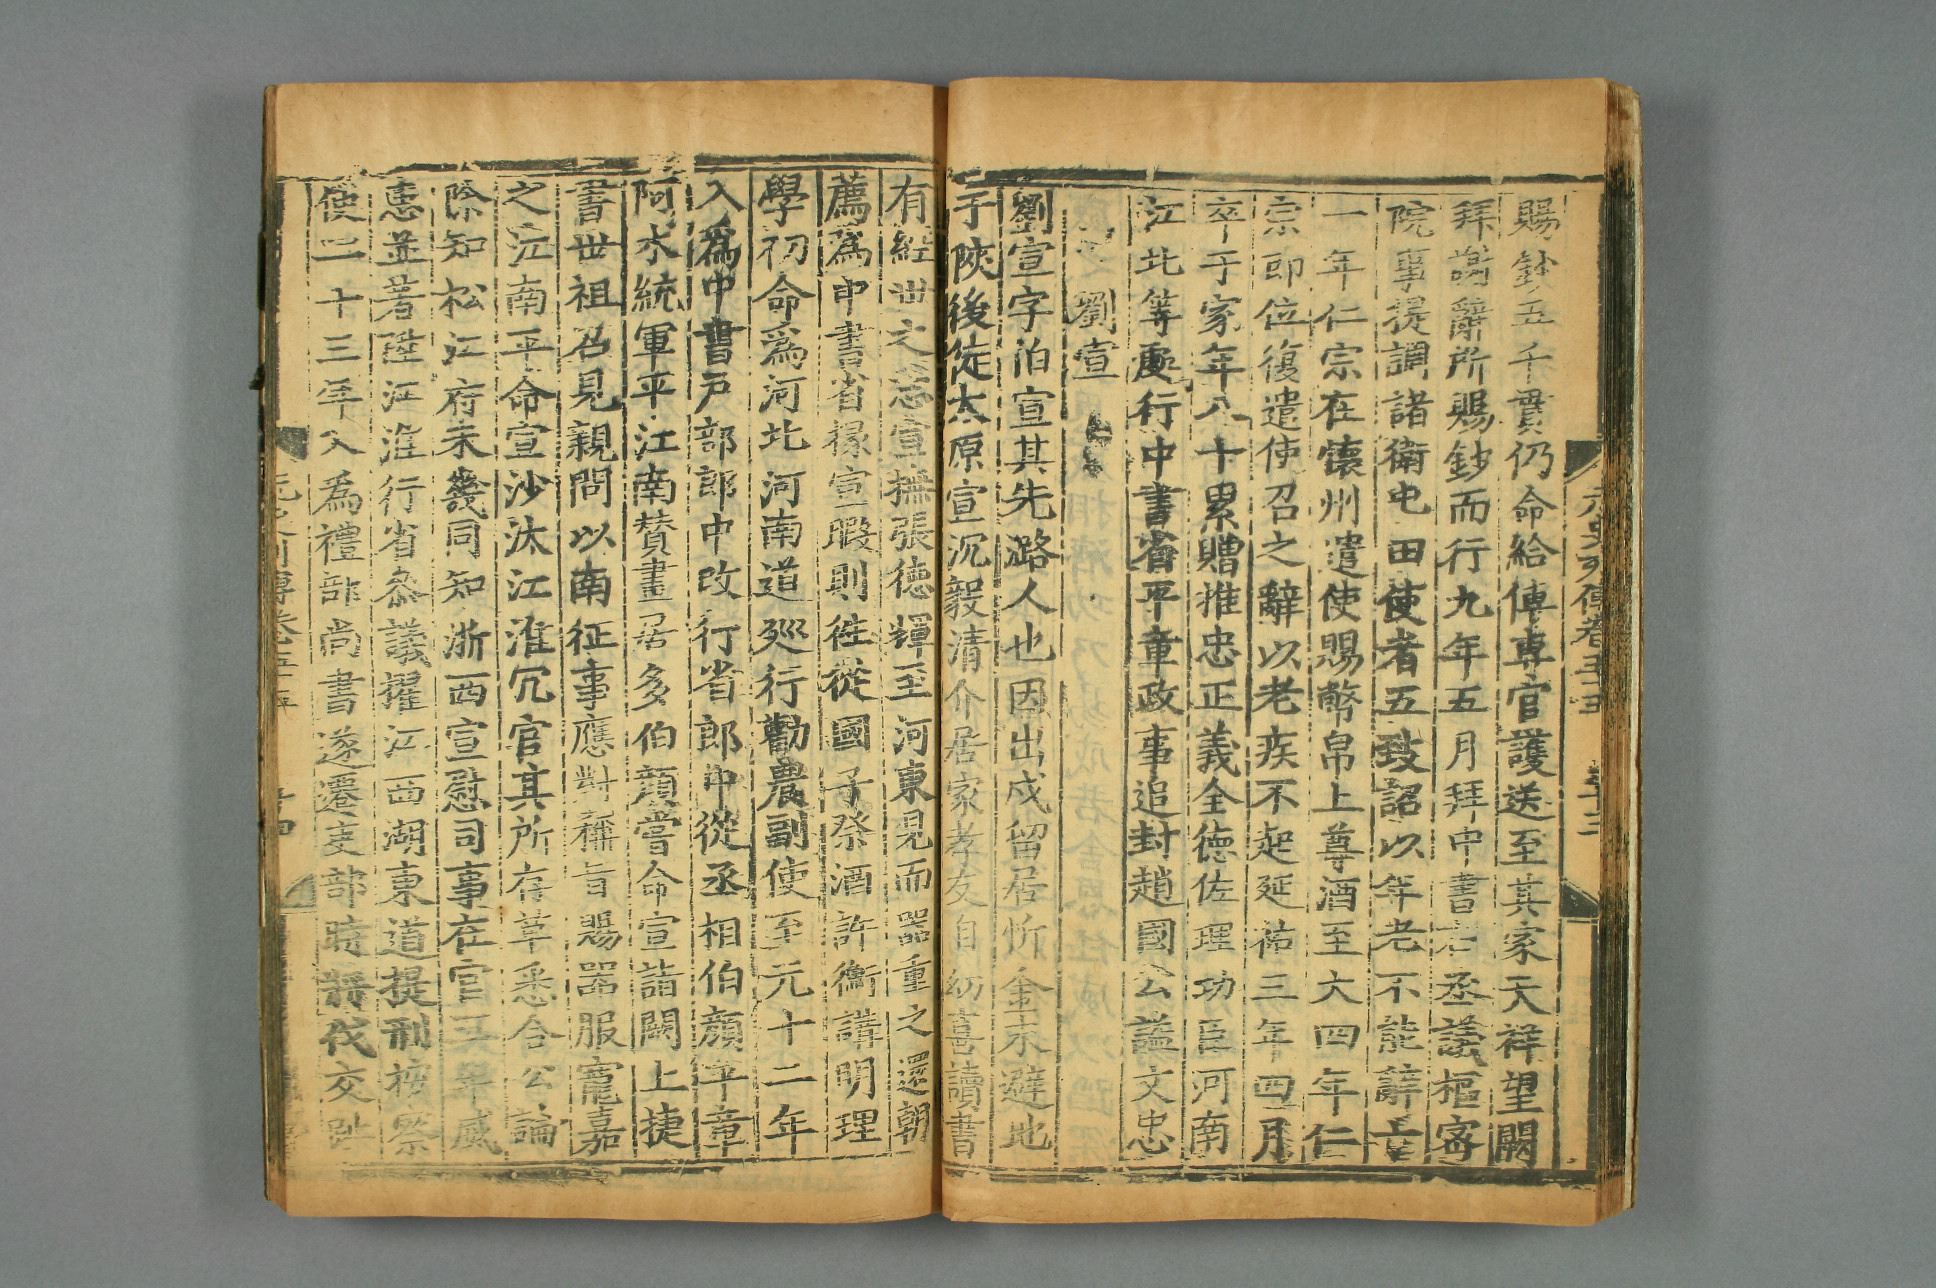 賜鈔五千貫仍命給傳專官護送至其家天祥望闕
拜謝辭所賜鈔而行九年五月拜中書右丞議樞密
院事提調諸衛屯田使者五致詔以年老不能辭上
一年仁宗在懷州遣使賜幣帛上尊酒至大四年仁
宗即位復遣使召之辭以老疾不起延祐三年四月
卒于家年八十累贈推忠正義全德佐理功臣河南
江北等處行中書省平章政事追封趙國公謚文忠
劉宣
劉宣字伯宣其先潞人也因出戍留居忻金末避地
于陝後徙太原宣沉毅清介居家孝友自幼喜讀書
有經世之志宣撫張德輝至河東見而器重之還朝
薦爲中書省掾宣暇則往從國子祭酒許衡講明理
學初命爲河北河南道廵行勸農副使至元十二年
入爲中書戸部郎中改行省郎中從丞相伯顔平章
阿朮統軍平江南賛畫居多伯顔嘗命宣詣闕上捷
書世祖召見親問以南征事應對稱旨賜器服寵嘉
之江南平命宣沙汰江淮冗官其所存革悉合公論
除知松江府未幾同知浙西宣慰司事在官五年威
惠並著陞江淮行省參議擢江西湖東道提刑按察
使二十三年入爲禮部尚書遂遷吏部時將伐交趾